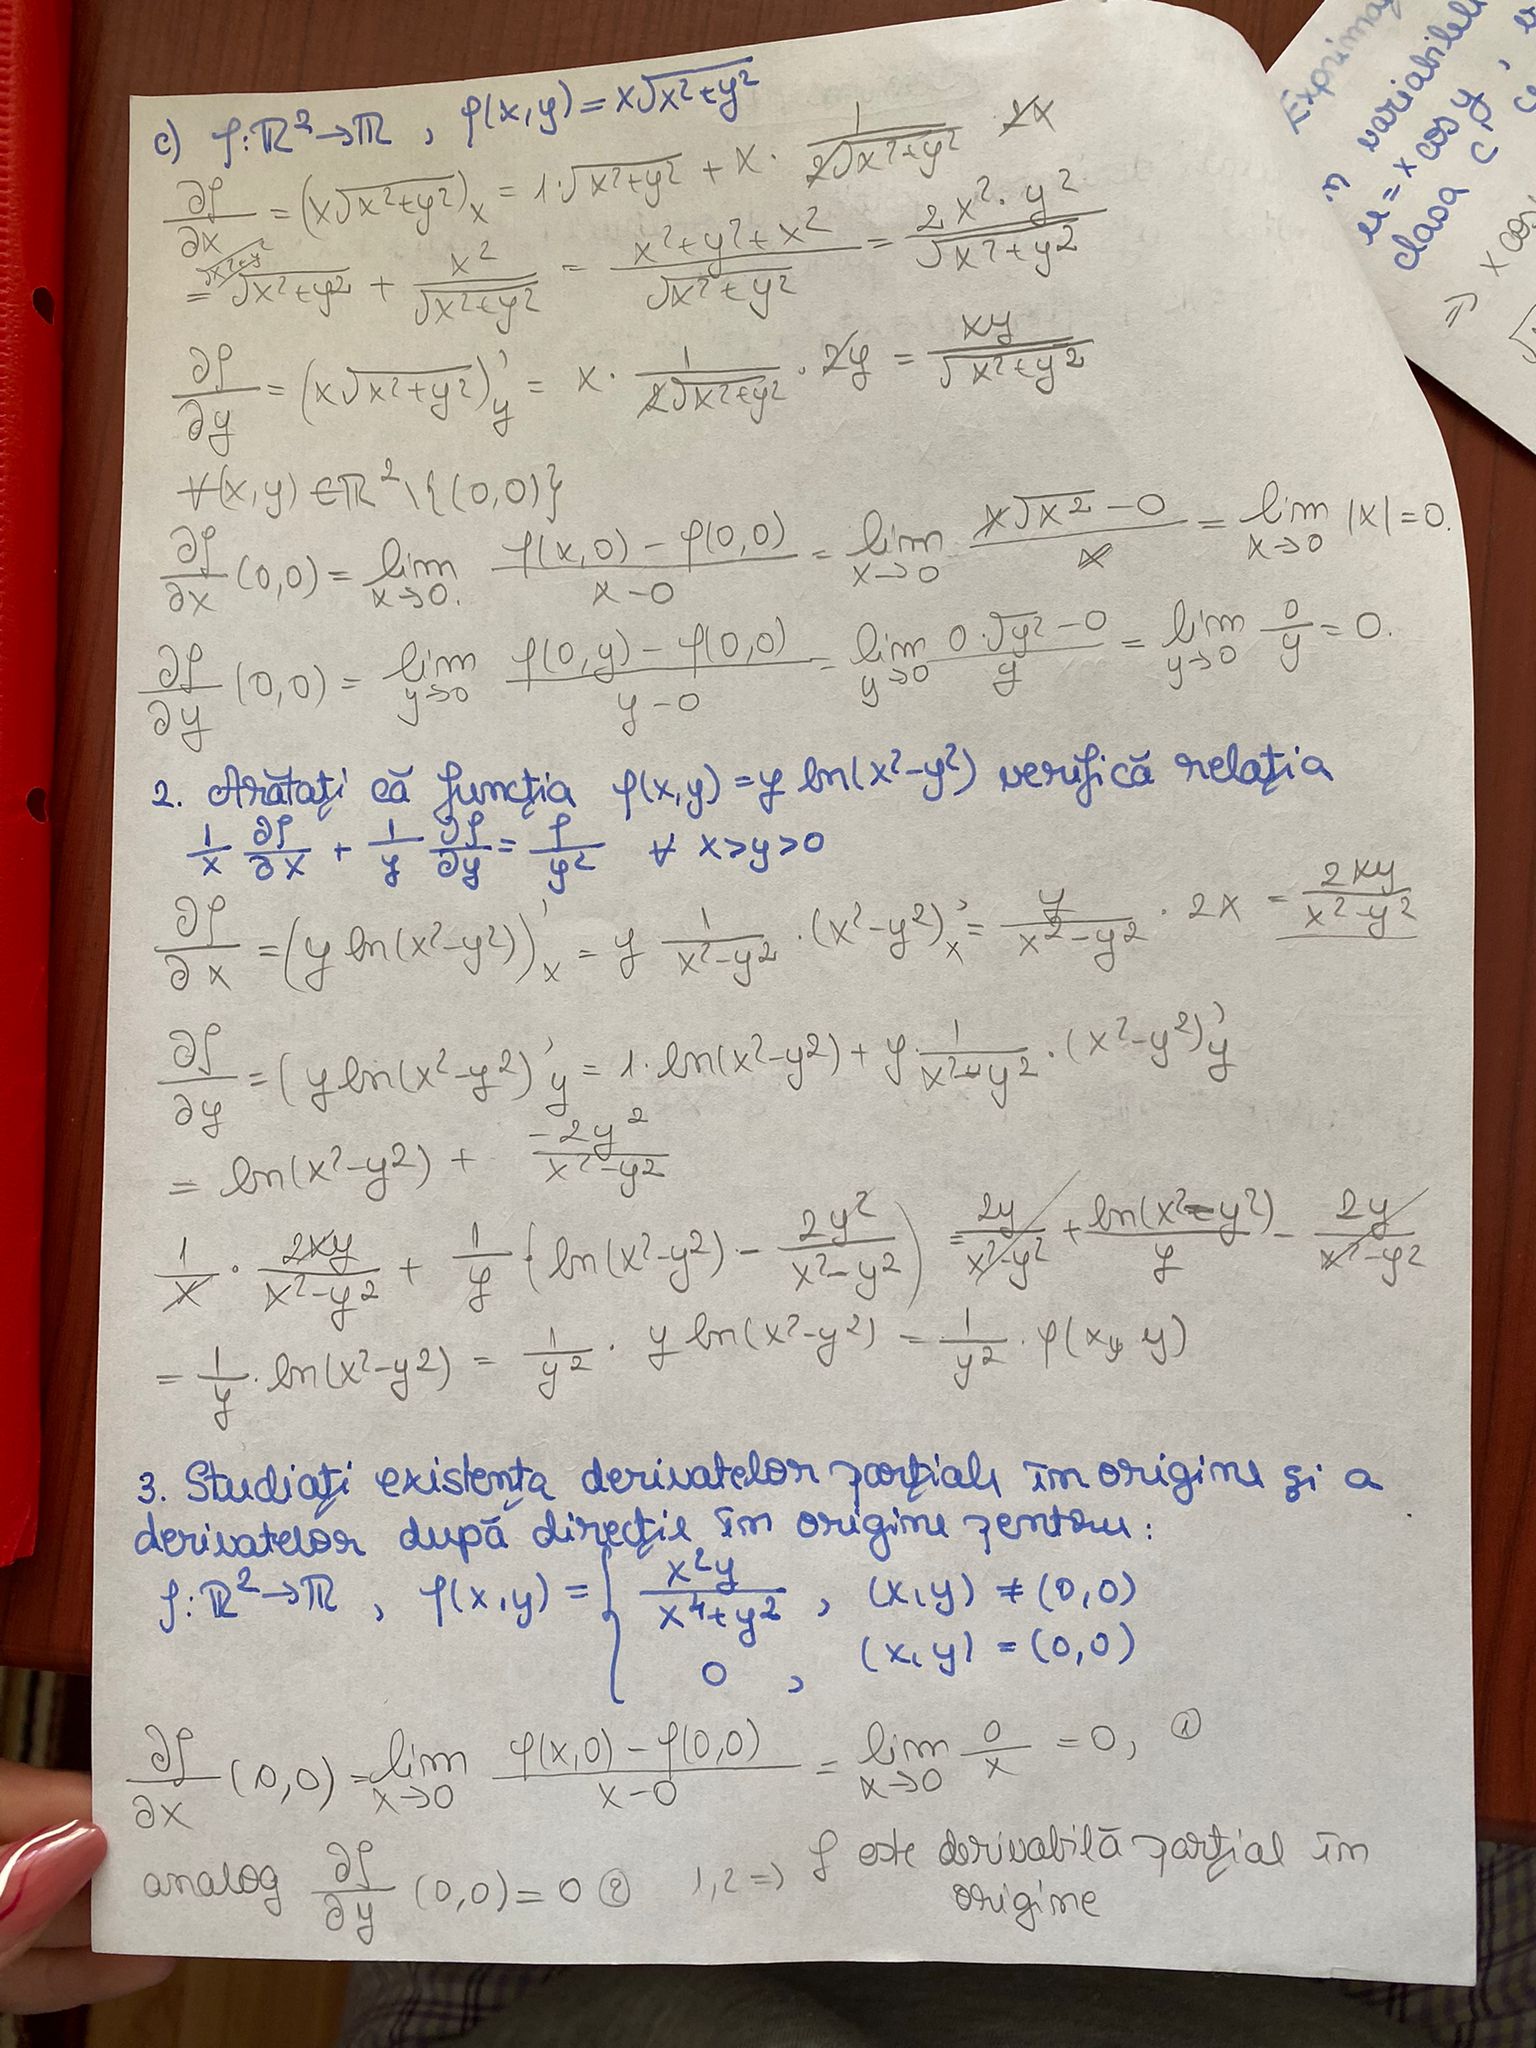 c) f:ℝ²→ℝ , f(x,y)=x√(x²+y²)
∂f/∂x = (x√(x²+y²))ₓ = 1·√(x²+y²) + x · 1/(2√(x²+y²)) · 2x
= √(x²+y²) + x²/√(x²+y²) = (x²+y²+x²)/√(x²+y²) = (2x²·y²)/√(x²+y²)
∂f/∂y = (x√(x²+y²))'_y = x · 1/(2√(x²+y²)) · 2y = xy/√(x²+y²)
∀(x,y)∈ℝ²\{(0,0)}
∂f/∂x (0,0) = lim_{x→0} (f(x,0)-f(0,0))/(x-0) = lim_{x→0} (x√(x²)-0)/x = lim_{x→0} |x|=0.
∂f/∂y (0,0) = lim_{y→0} (f(0,y)-f(0,0))/(y-0) = lim_{y→0} (0·√(y²)-0)/y = lim_{y→0} 0/y = 0.
2. Arătați că funcția f(x,y)=y ln(x²-y²) verifică relația
1/x ∂f/∂x + 1/y ∂f/∂y = f/y² ∀ x>y>0
∂f/∂x = (y ln(x²-y²))'_x = y 1/(x²-y²) · (x²-y²)'_x = y/(x²-y²) · 2x = 2xy/(x²-y²)
∂f/∂y = (y ln(x²-y²)'_y = 1·ln(x²-y²) + y·1/(x²-y²) · (x²-y²)'_y
= ln(x²-y²) + (-2y²)/(x²-y²)
1/x · 2xy/(x²-y²) + 1/y · (ln(x²-y²) - 2y²/(x²-y²)) = 2y/(x²-y²) + ln(x²-y²)/y - 2y/(x²-y²)
= 1/y · ln(x²-y²) = 1/y² · y ln(x²-y²) = 1/y² · f(x,y)
3. Studiați existența derivatelor parțiale în origine și a
derivatelor după direcție în origine pentru:
f:ℝ²→ℝ , f(x,y) = { x²y/(x⁴+y²) , (x,y) ≠ (0,0)
0 , (x,y) = (0,0)
∂f/∂x (0,0) = lim_{x→0} (f(x,0)-f(0,0))/(x-0) = lim_{x→0} 0/x = 0, ①
analog ∂f/∂y (0,0) = 0 ② 1,2 => f este derivabilă parțial în
origine
Exprima
n variabilel
u = x cos y
clasa C
=> x cos